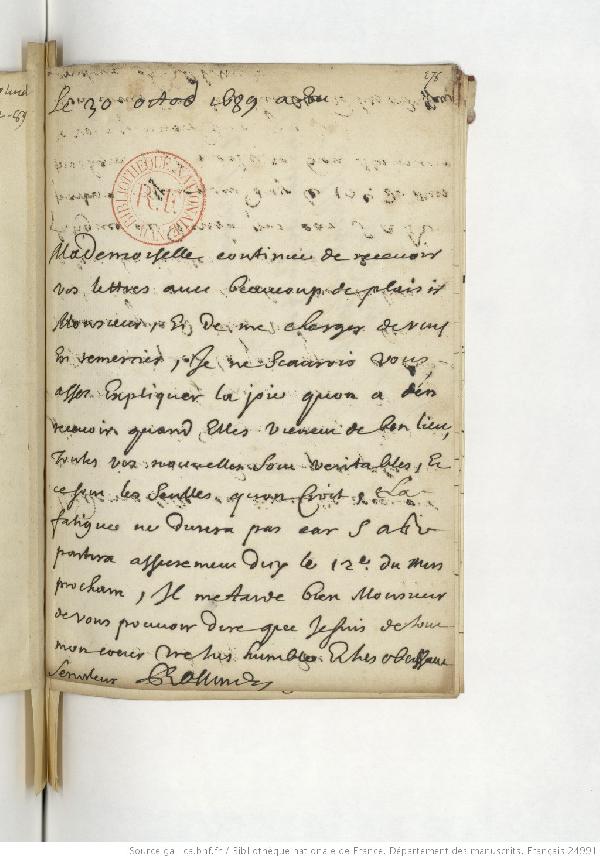 276
Le 30 octob 1689 a Eu
BIBLIOTHEQUE NATIONALE
R.F.
Mademoiselle continue de recevoir
vos lettres avec beaucoup de plaisir
Monsieur, Et de me charger de vous
En remercier, Je ne scaurois vous
asses Expliquer la joie quon a den
recevoir quand Elles vienent de bon lieu,
Toutes vos nouvelles sont veritables, Et
ce sont les seulles quon croit, La
fatigue ne durera pas car S A R
partira assurement dicy le 12e. du mois
prochain, Il me tarde bien Monsieur
de vous pouvoir dire que Je suis de tout
mon coeur vre tres humble Et tres obeissant
serviteur
Source gallica.bnf.fr / Bibliothèque nationale de France. Département des manuscrits. Français 24991